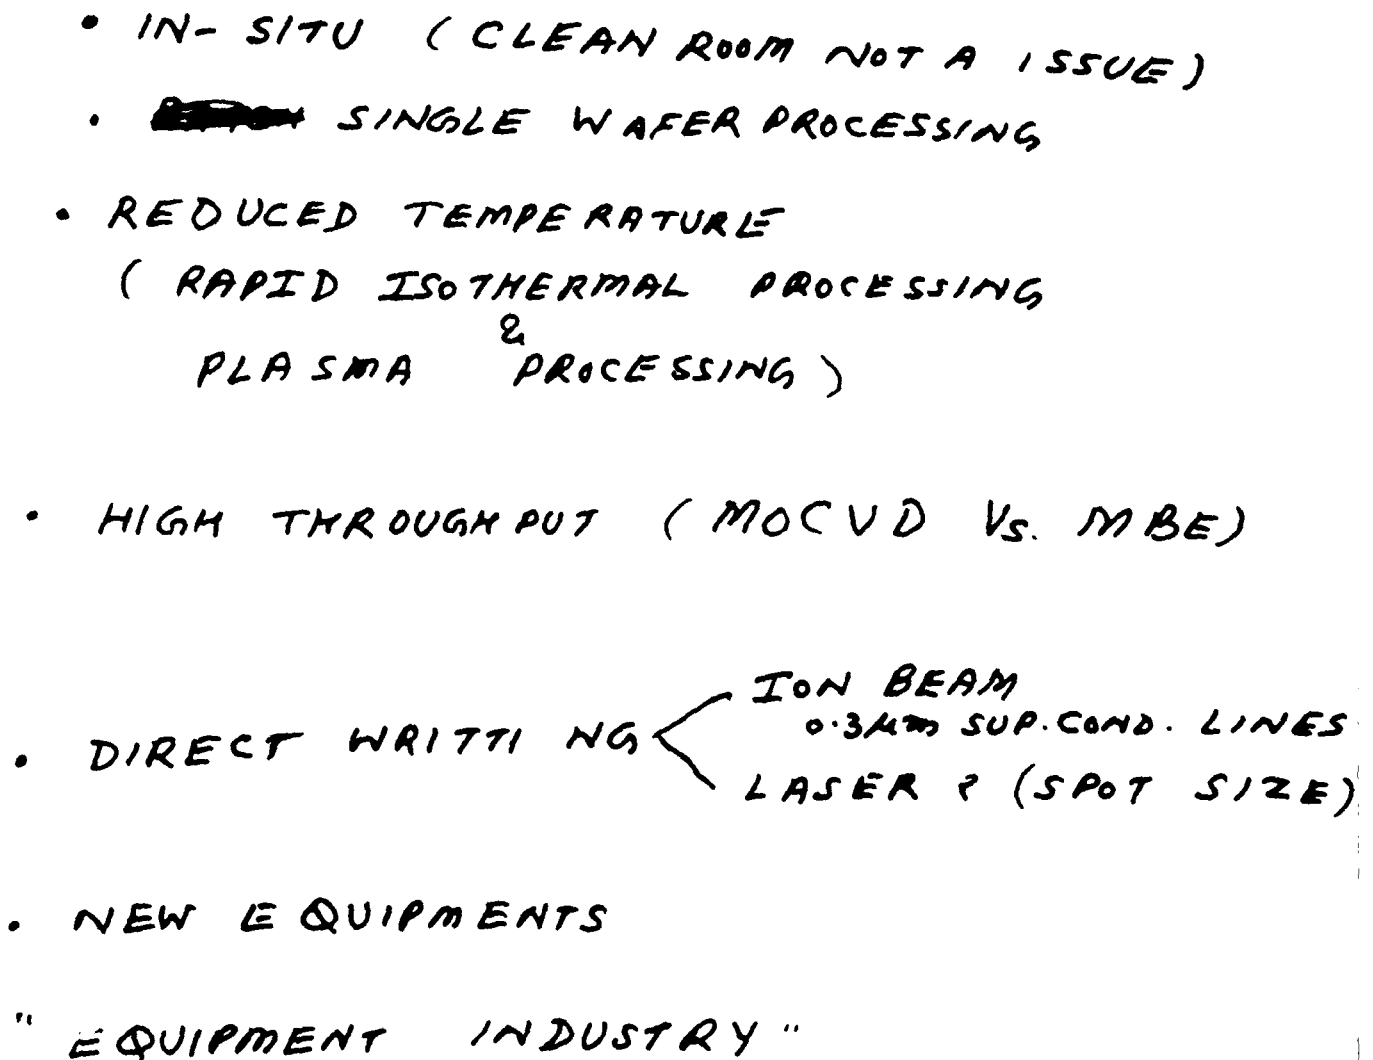 • IN-SITU (CLEAN ROOM NOT A ISSUE)
• SINGLE WAFER PROCESSING
• REDUCED TEMPERATURE
(RAPID ISOTHERMAL PROCESSING
&
PLASMA PROCESSING)
• HIGH THROUGHPUT (MOCVD Vs. MBE)
ION BEAM
0.3 μm SUP. COND. LINES
• DIRECT WRITTING
LASER ? (SPOT SIZE)
• NEW EQUIPMENTS
"EQUIPMENT INDUSTRY"